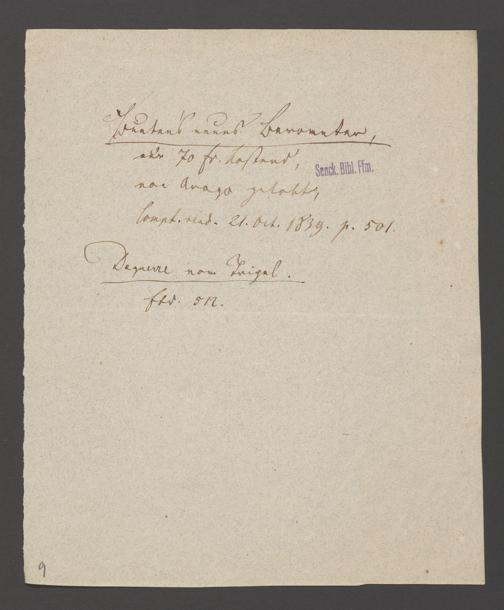 Bunten's neues Barometer,
nur 70 fr. kostend,
Senck. Bibl. Ffm.
von Arago gelobt,
Compt. rend. 21. Oct. 1839. p. 501.
Daguerre vom
ibid. 512.
9